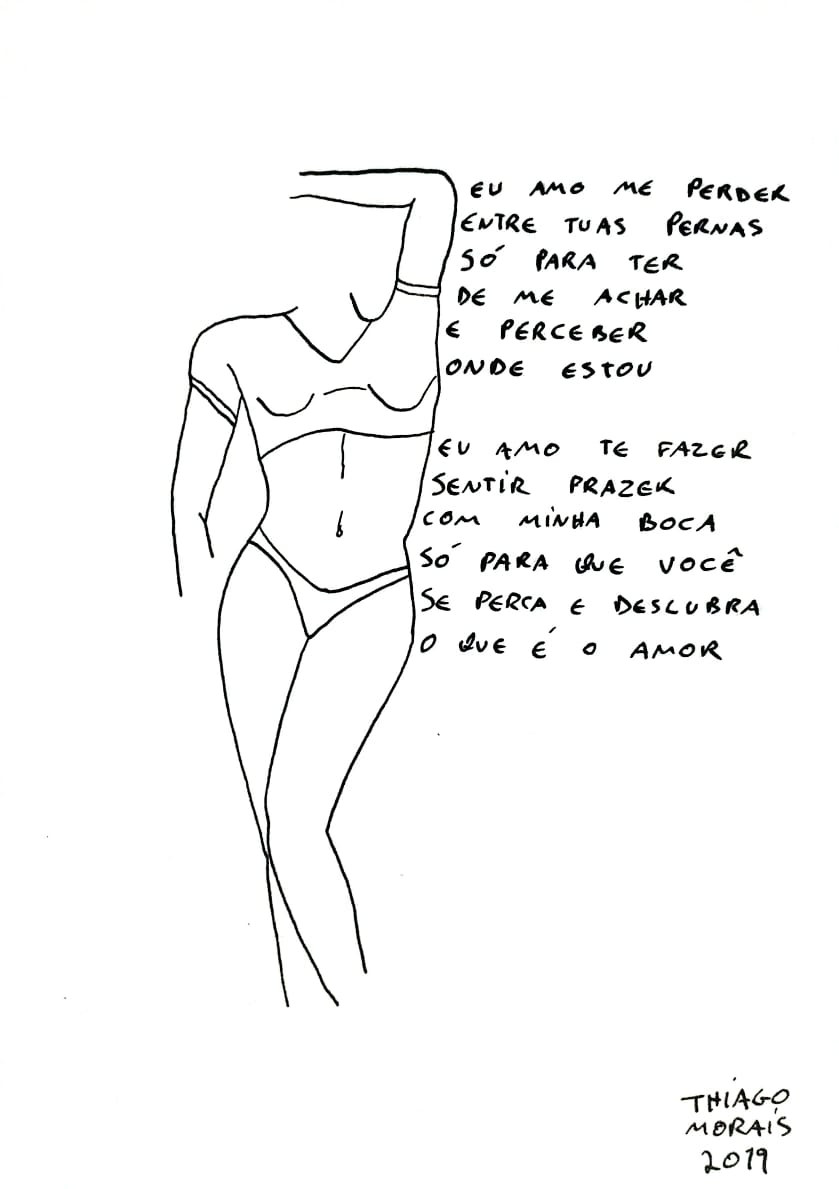 EU AMO ME PERDER
ENTRE TUAS PERNAS
SÓ PARA TER
DE ME ACHAR
E PERCEBER
ONDE ESTOU
EU AMO TE FAZER
SENTIR PRAZER
COM MINHA BOCA
SÓ PARA QUE VOCÊ
SE PERCA E DESCUBRA
O QUE É O AMOR
THIAGO
MORAIS
2019